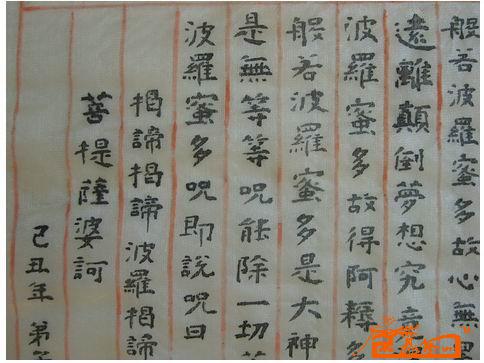 般若波羅蜜多故心無罣
遠離顛倒夢想究竟
波羅蜜多故得阿耨多
般若波羅蜜多是大神
是無等等呪能除一切
波羅蜜多呪即說呪曰
揭諦揭諦波羅揭諦
菩提薩婆訶
己丑年